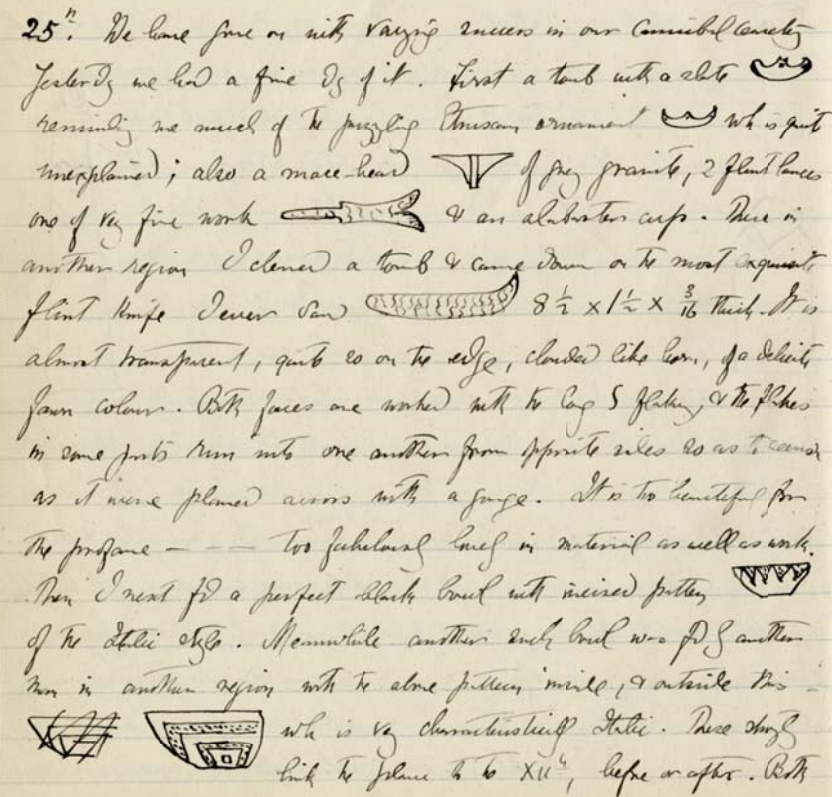 25th. We have gone on with varying success in our Cannibal Cemetery
Yesterday we had a fine dy of it. First a tomb with a slate
reminding me much of the puzzling Etruscan ornament wh is quite
unexplained; also a mace-head of grey granite, 2 flint lances
one of vy fine work & an alabaster cup. Then in
another region I cleared a tomb & came down on the most exquisite
flint knife I ever saw 8 1/2 x 1 1/2 x 3/16 thick. It is
almost transparent, quite so on the edge, clouded like horn, of a delicate
fawn colour. Both faces are worked with the long S flaking, & the flakes
in some parts run into one another from opposite sides so as to
as it were planed across with a gouge. It is too beautiful for
the profane - - - - too fabulously lovely in material as well as work.
Then I next fd a perfect black bowl with incised pattern
of the Italic style. Meanwhile another such bowl was fd by another
man in another region with the above pattern inside, & outside this -
wh is vy characteristically Italic. These strongly
link the place to the XIIth, before or after. Both